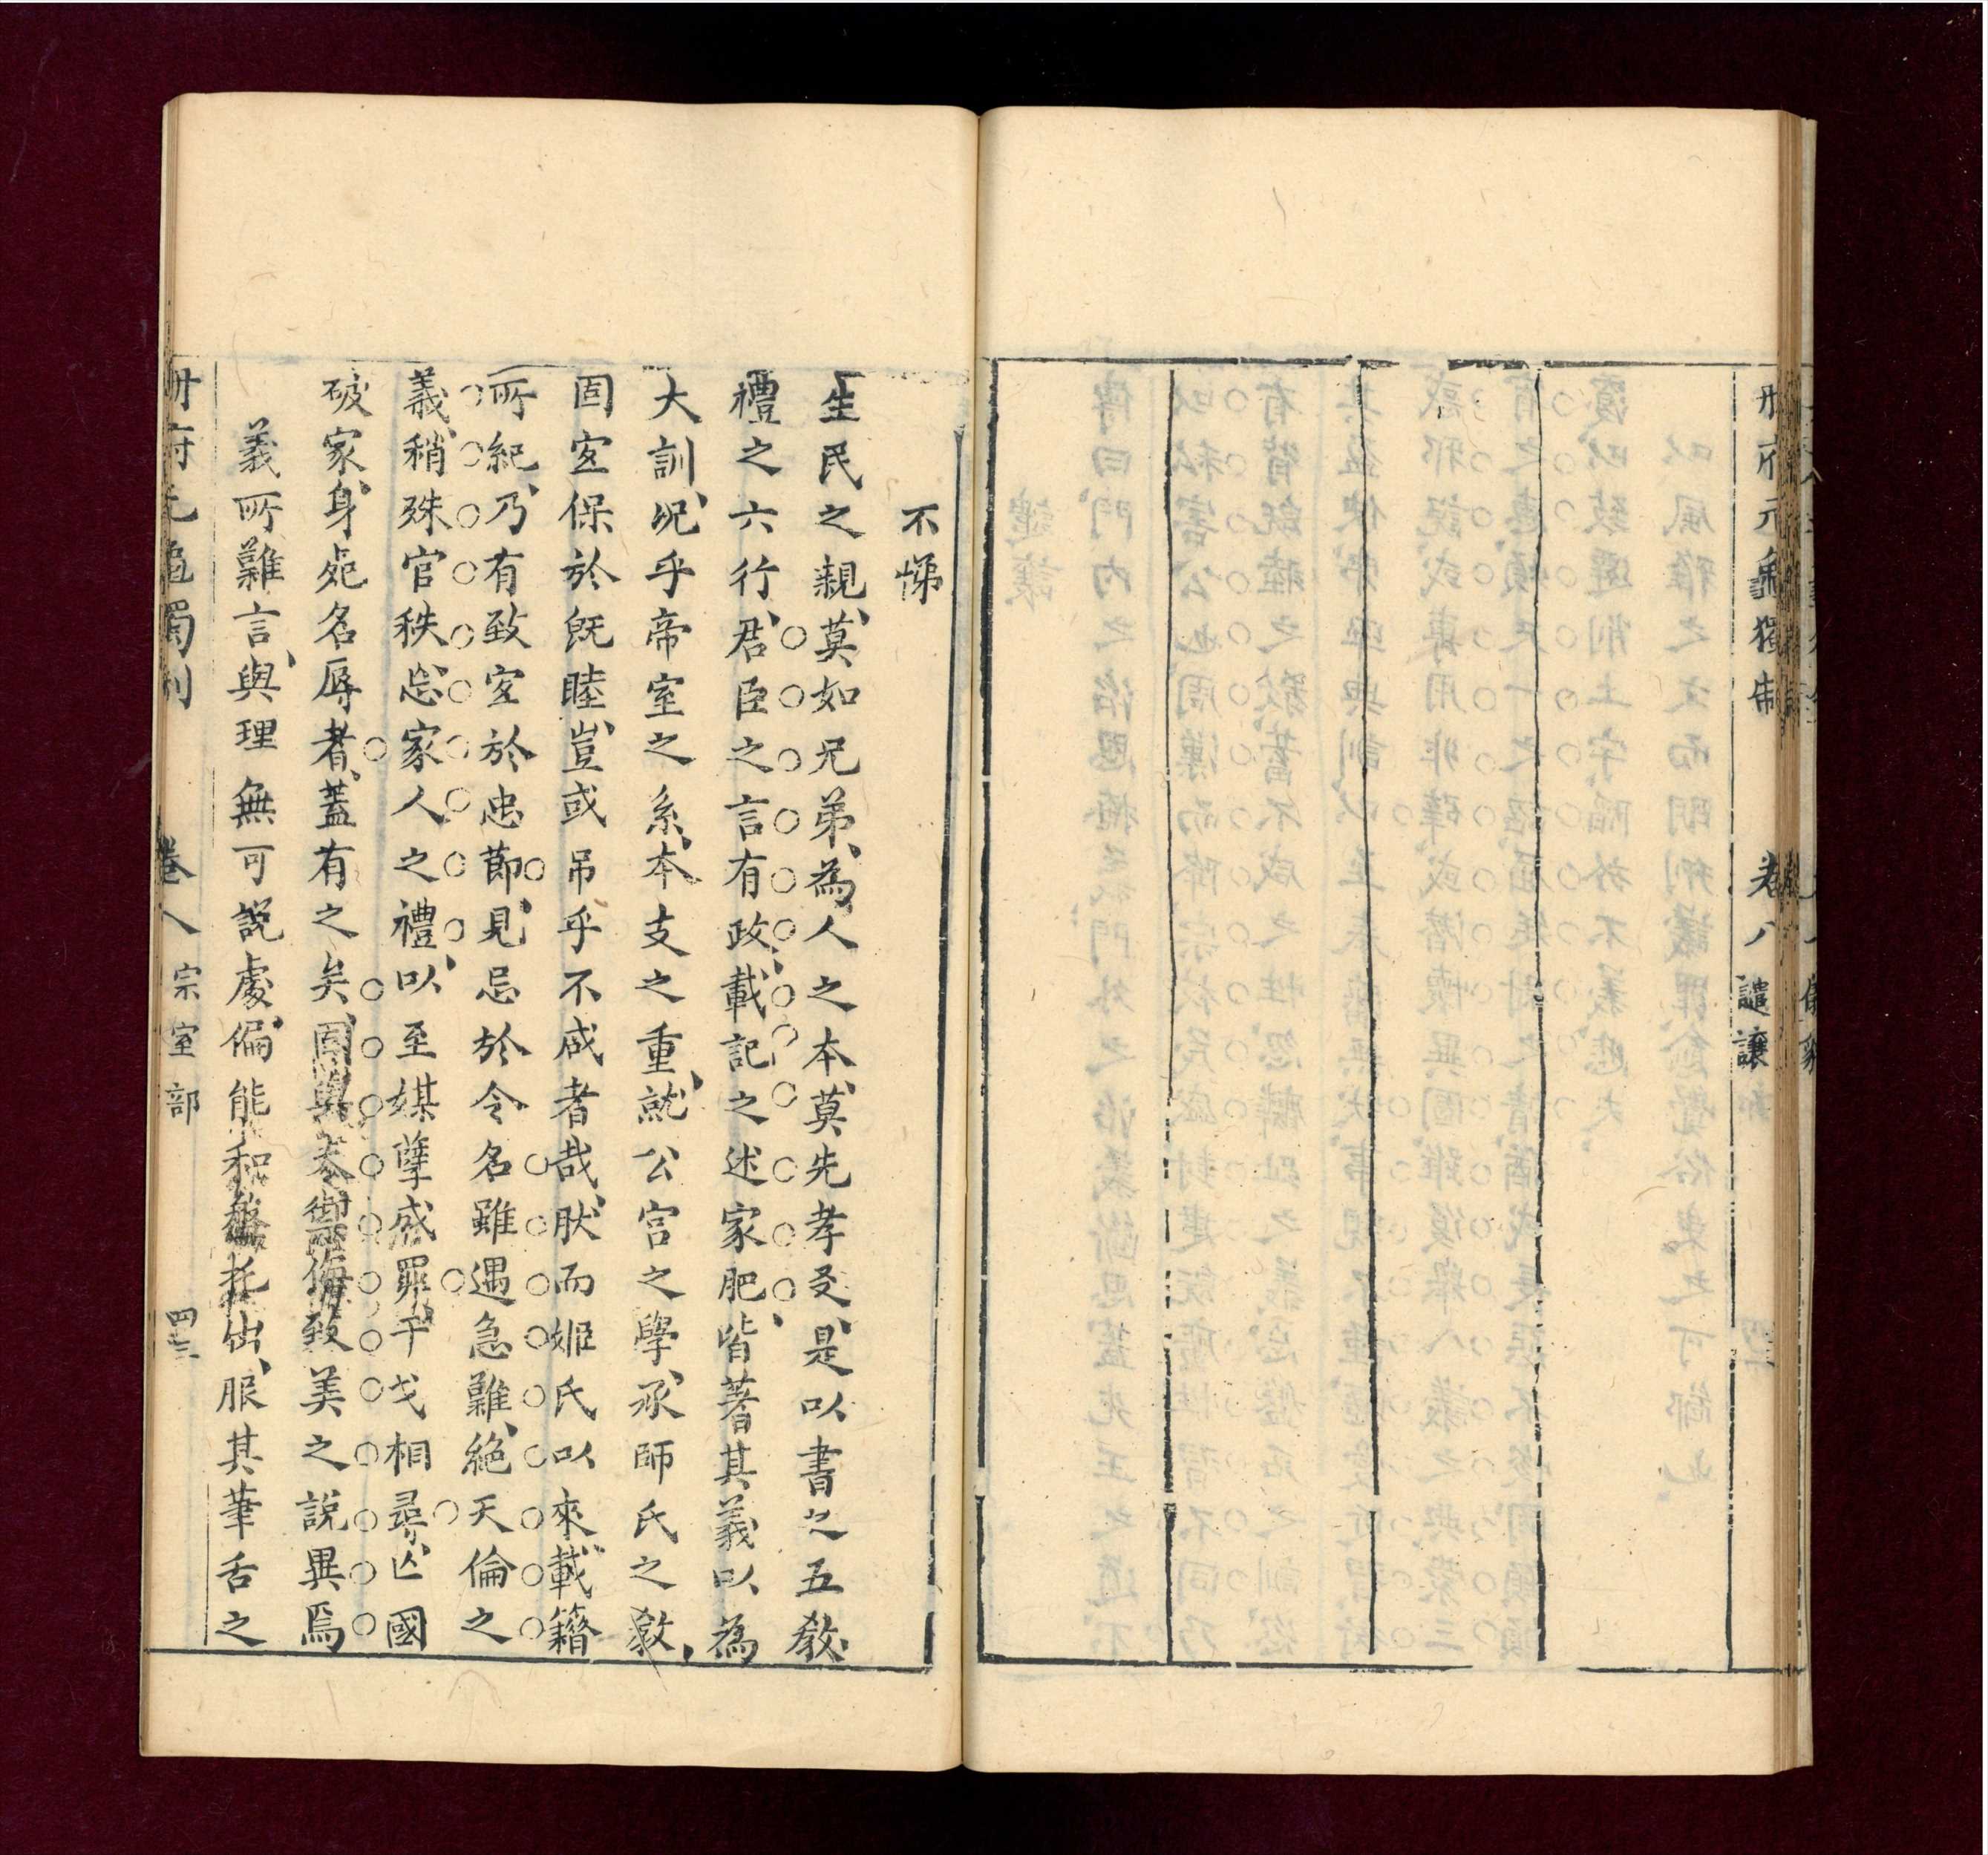 冊府元龜獨制 卷八 譴讓
不悌
生民之親莫如兄弟為人之本莫先孝友是以書之五教
禮之六行君臣之言有政載記之述家肥皆著其義以為
大訓况乎帝室之系本支之重就公宫之學承師氏之教
固宜保於旣睦豈或吊乎不咸者哉肰而姬氏以來載籍
所紀乃有致宻於忠節見忌於令名雖遇急難絶天倫之
義稍殊官秩忘家人之禮以至媒孽成罪干戈相尋亡國
破家身死名辱者蓋有之矣固異奏禦侮致美之說異焉
義所難言與理無可說處偏能和盤托出服其筆舌之
冊府元龜獨制 卷八 宗室部 四三